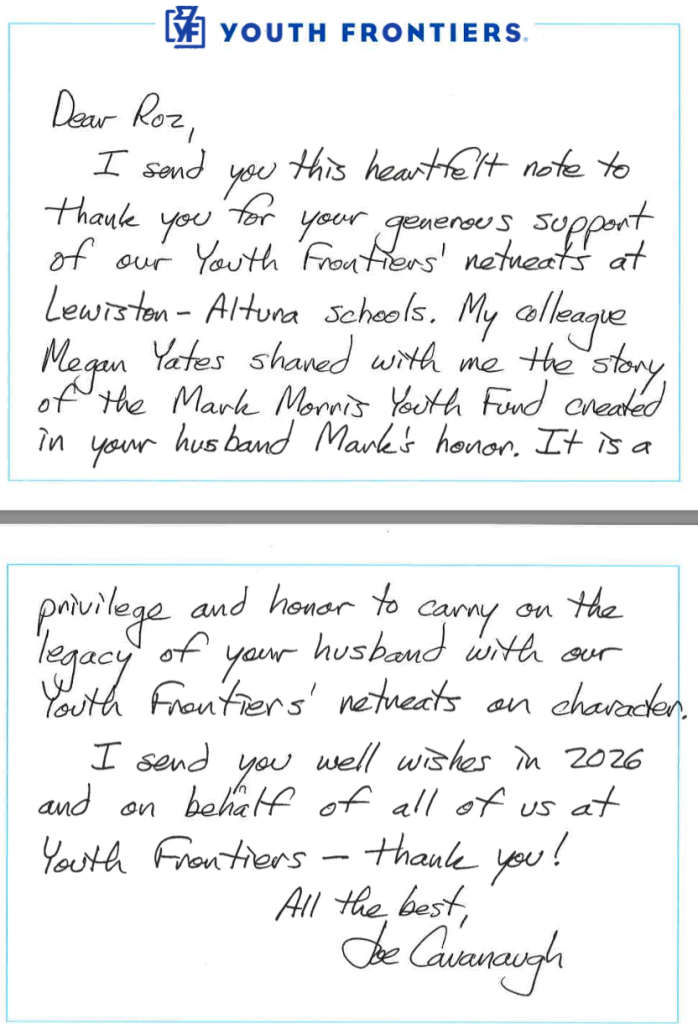 YOUTH FRONTIERS®
Dear Roz,
I send you this heartfelt note to
thank you for your generous support
of our Youth Frontiers' retreats at
Lewiston-Altura schools. My colleague
Megan Yates shared with me the story
of the Mark Morris Youth Fund created
in your husband Mark's honor. It is a
privilege and honor to carry on the
legacy of your husband with our
Youth Frontiers' retreats on character.
I send you well wishes in 2026
and on behalf of all of us at
Youth Frontiers – thank you!
All the best,
Joe Cavanaugh